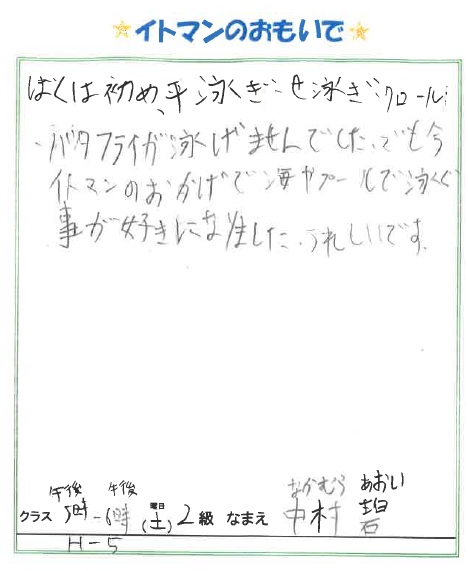 ★イトマンのおもいで★
ぼくは初め、平泳ぎ、せ泳ぎ、クロール、
バタフライが泳げませんでした。でも今
イトマンのおかげで海やプールで泳ぐ
事が好きになりました。うれしいです。
午後 午後 なかむら あおい
クラス 5時-6時 (土) 曜日 2級 なまえ 中村 碧
H-5